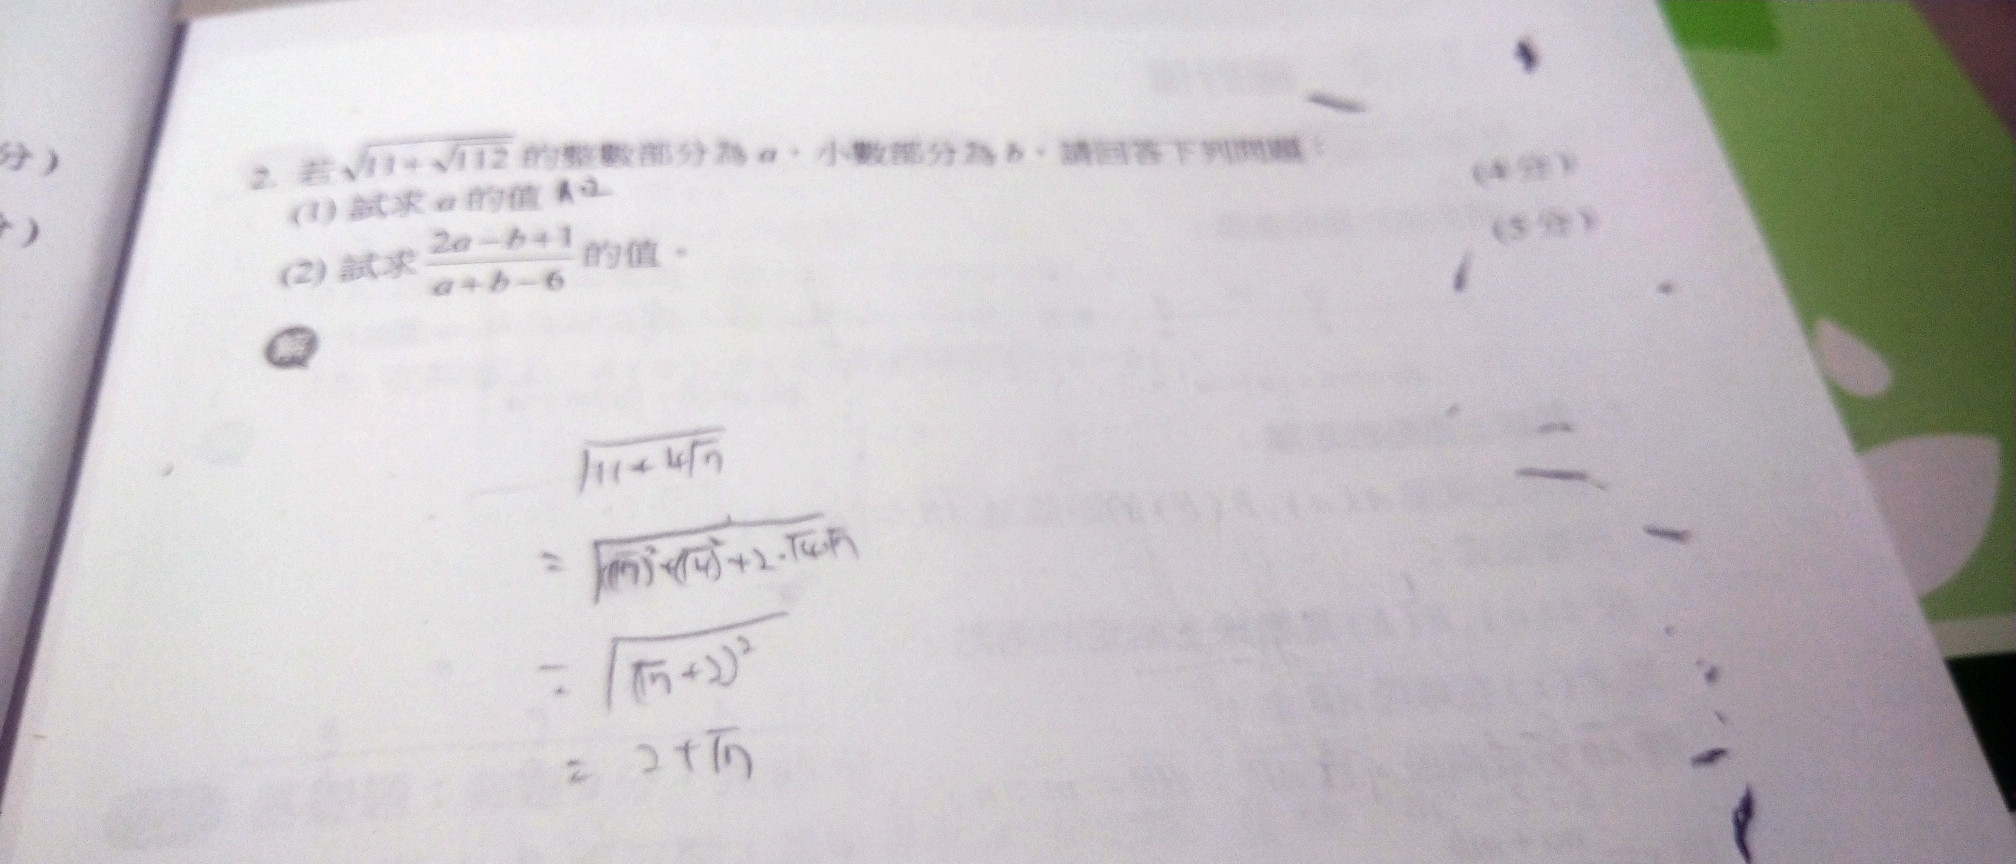 分)
2. 若√11+√112 的整數部分為 a，小數部分為 b，請回答下列問題：
(1) 試求 a 的值 (4 分)
(2) 試求 2a-b+1/a+b-6 的值。 (5 分)
解
√11+4√7
= √(√7)²+(√4)²+2·√4·√7
= √(√7+2)²
= 2+√7